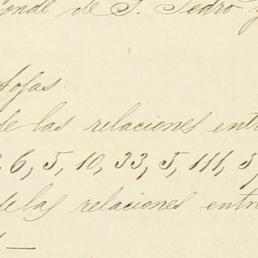 onde de S. Pedro y
tofas.
de las relaciones entr
6, 5, 10, 33, 5, 111, 5
de las relaciones entre